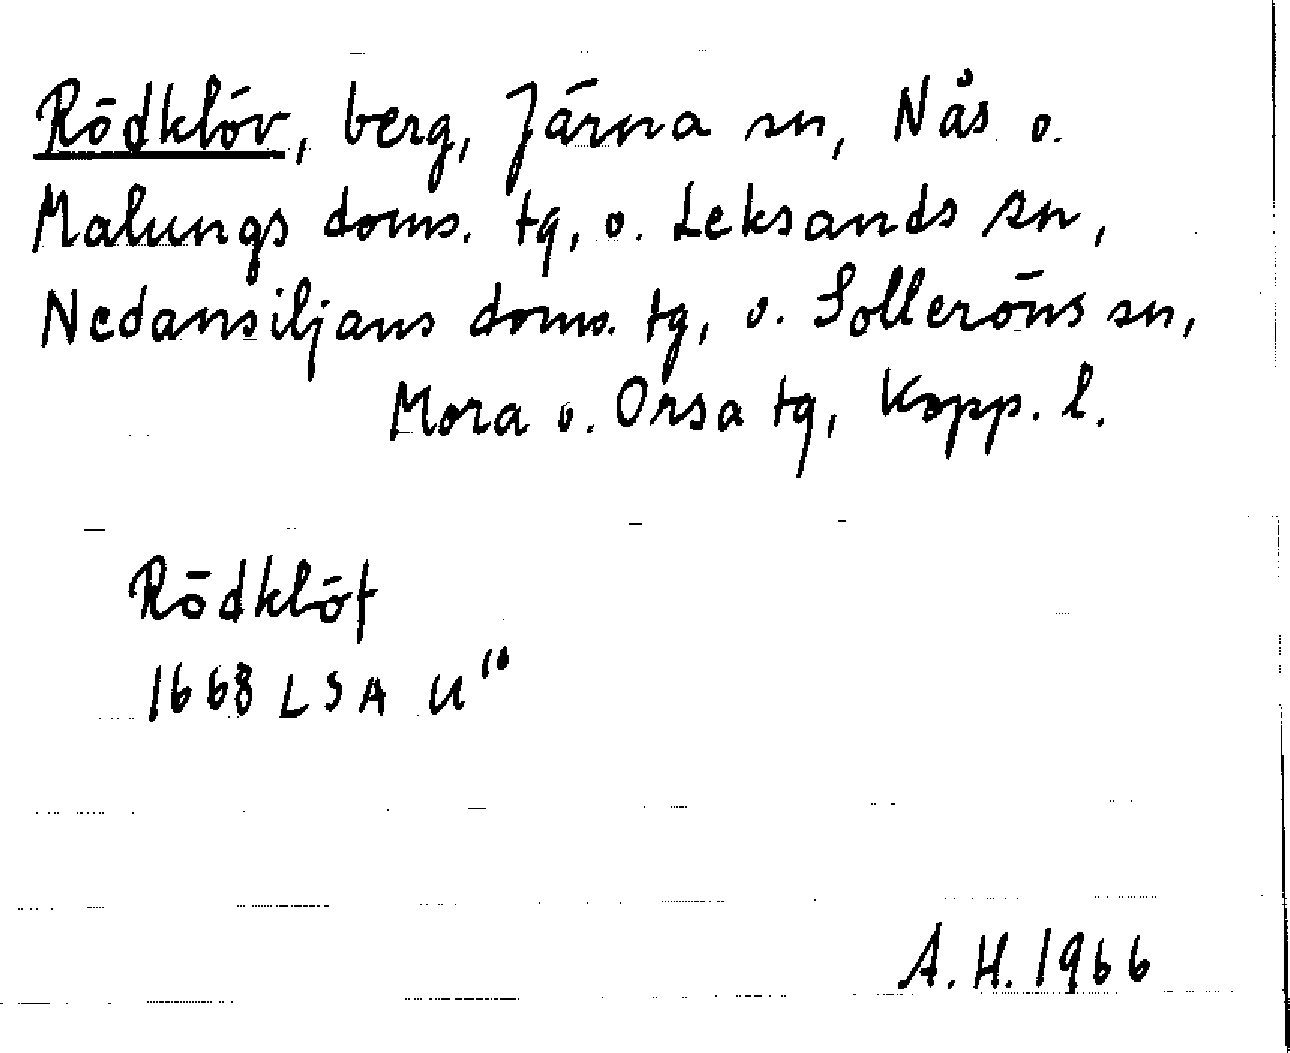 Rödklöv, berg, Järna sn, Nås o.
Malungs doms. tg, o. Leksands sn,
Nedansiljans doms. tg, o. Solleröns sn,
Mora o. Orsa tg, Kopp. l.
Rödklöf
1668 LSA U"
A. H. 1966